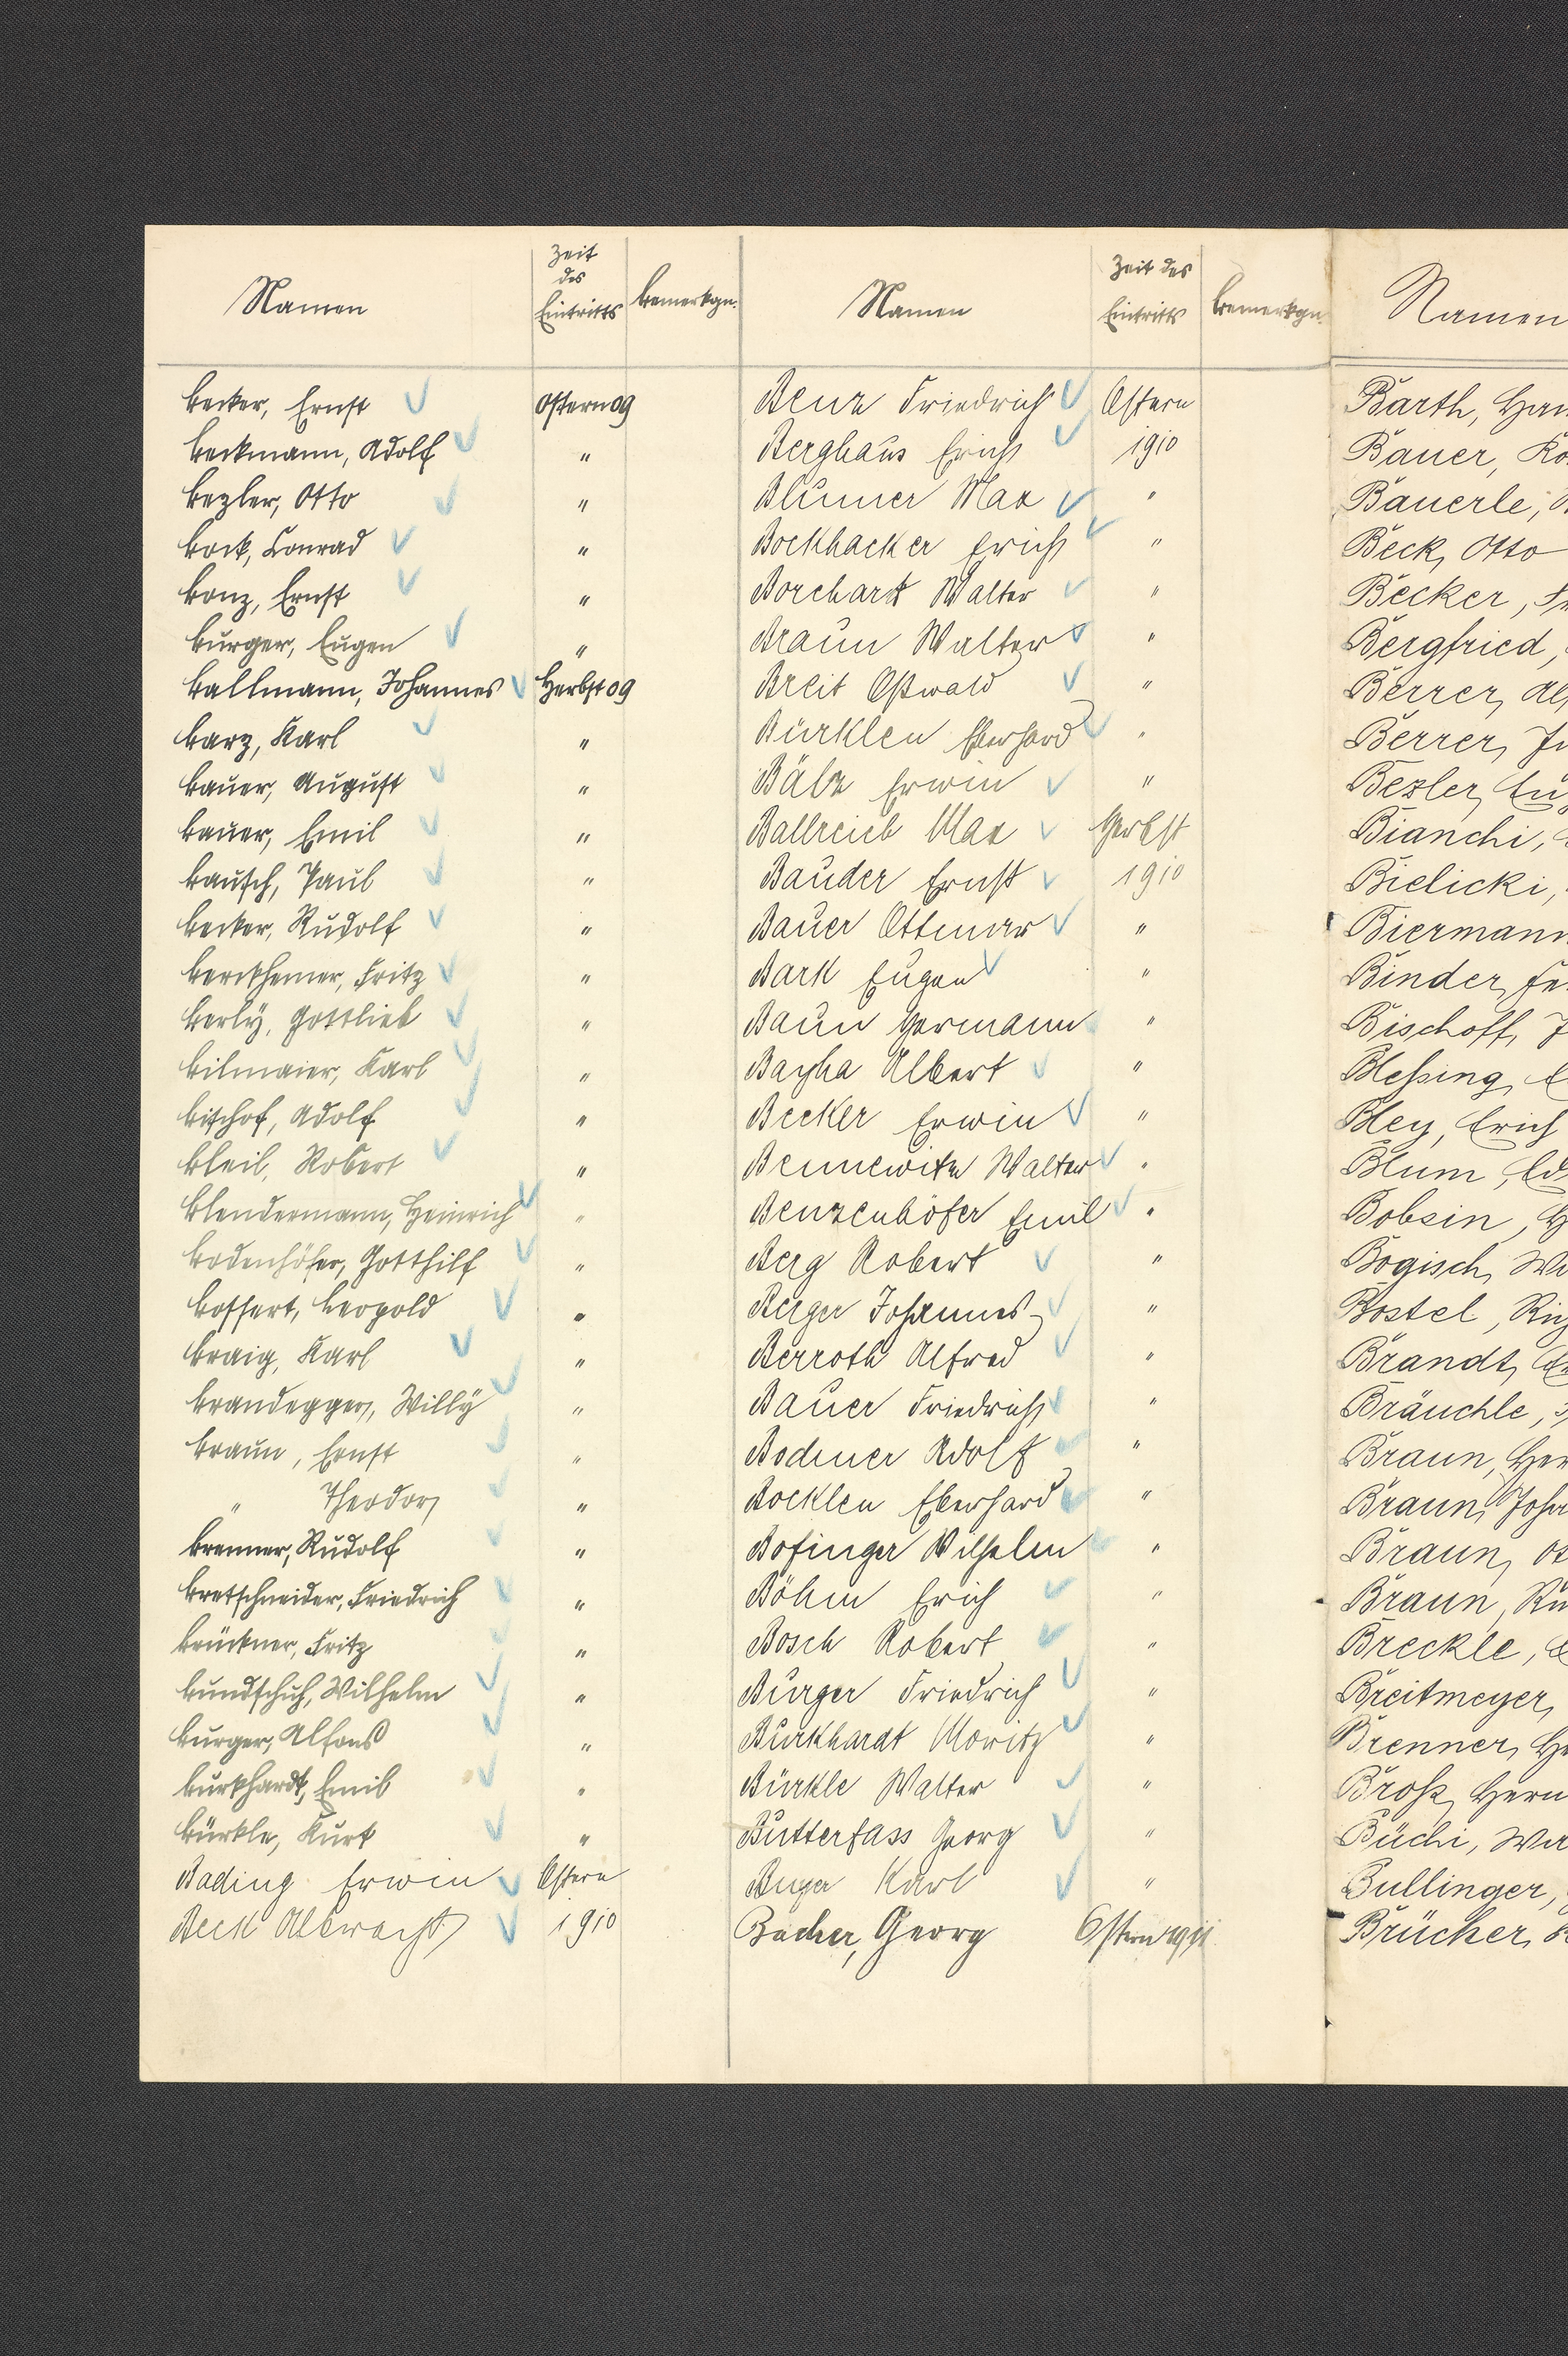 Namen
Zeit
des
Eintritts
Bemerkgn.
Becker, Ernst Ostern 09
Beckmann, Adolf "
Bezler, Otto "
Bock, Conrad "
Bonz, Ernst "
Burger, Eugen "
Ballmann, Johannes Herbst 09
Barz, Karl "
Bauer, August "
Bauer, Emil "
Bausch, Paul "
Becker, Rudolf "
Berckhemer, Fritz "
Berly, Gottlieb "
Bilmaier, Karl "
Bischof, Adolf "
Bleil, Robert "
Blendermann, Heinrich "
Bodenhöfer, Gotthilf "
Bossert, Leopold "
Braig, Karl "
Brandegger, Willy "
Braun, Ernst "
" Theodor "
Brenner, Rudolf "
Bretschneider, Friedrich "
Brückner, Fritz "
Bundschuh, Wilhelm "
Burger, Alfons "
Burkhardt, Emil "
Bürkle, Kurt "
Bading Erwin Ostern
Beck Albrecht 1910
Namen
Zeit des
Eintritts
Bemerkgn.
Benz Friedrich Ostern
Berghaus Erich 1910
Blumer Max "
Bockhacker Erich "
Borchart Walter "
Braun Walter "
Breit Oswald "
Bürklen Eberhard "
Bälz Erwin "
Ballreich Max Herbst
Bauder Ernst 1910
Bauer Ottmar "
Bark Eugen "
Baun Hermann "
Bayha Albert "
Becker Erwin "
Bennewitz Walter "
Benzenhöfer Emil "
Berg Robert "
Berger Johannes "
Berroth Alfred "
Bauer Friedrich "
Bodmer Adolf "
Böcklen Eberhard "
Bofinger Wilhelm "
Böhm Erich "
Bosch Robert "
Burger Friedrich "
Burkhardt Moritz "
Bürkle Walter "
Butterfass Georg "
Karl "
Bacher, Georg Ostern 1911
Namen
Barth,
Bauer,
Bauerle,
Beck, Otto
Becker,
Bergfried,
Berrer,
Berrer,
Bezler,
Bianchi,
Bielicki,
Biermann
Binder,
Bischoff,
Blessing,
Bley, Erich
Blum,
Bobsin,
Bogisch,
Bostel,
Brandt,
Bräuchle,
Braun,
Braun,
Braun,
Braun,
Breckle,
Breitmeyer,
Brenner,
Broß,
Büchi,
Bullinger,
Brücker,